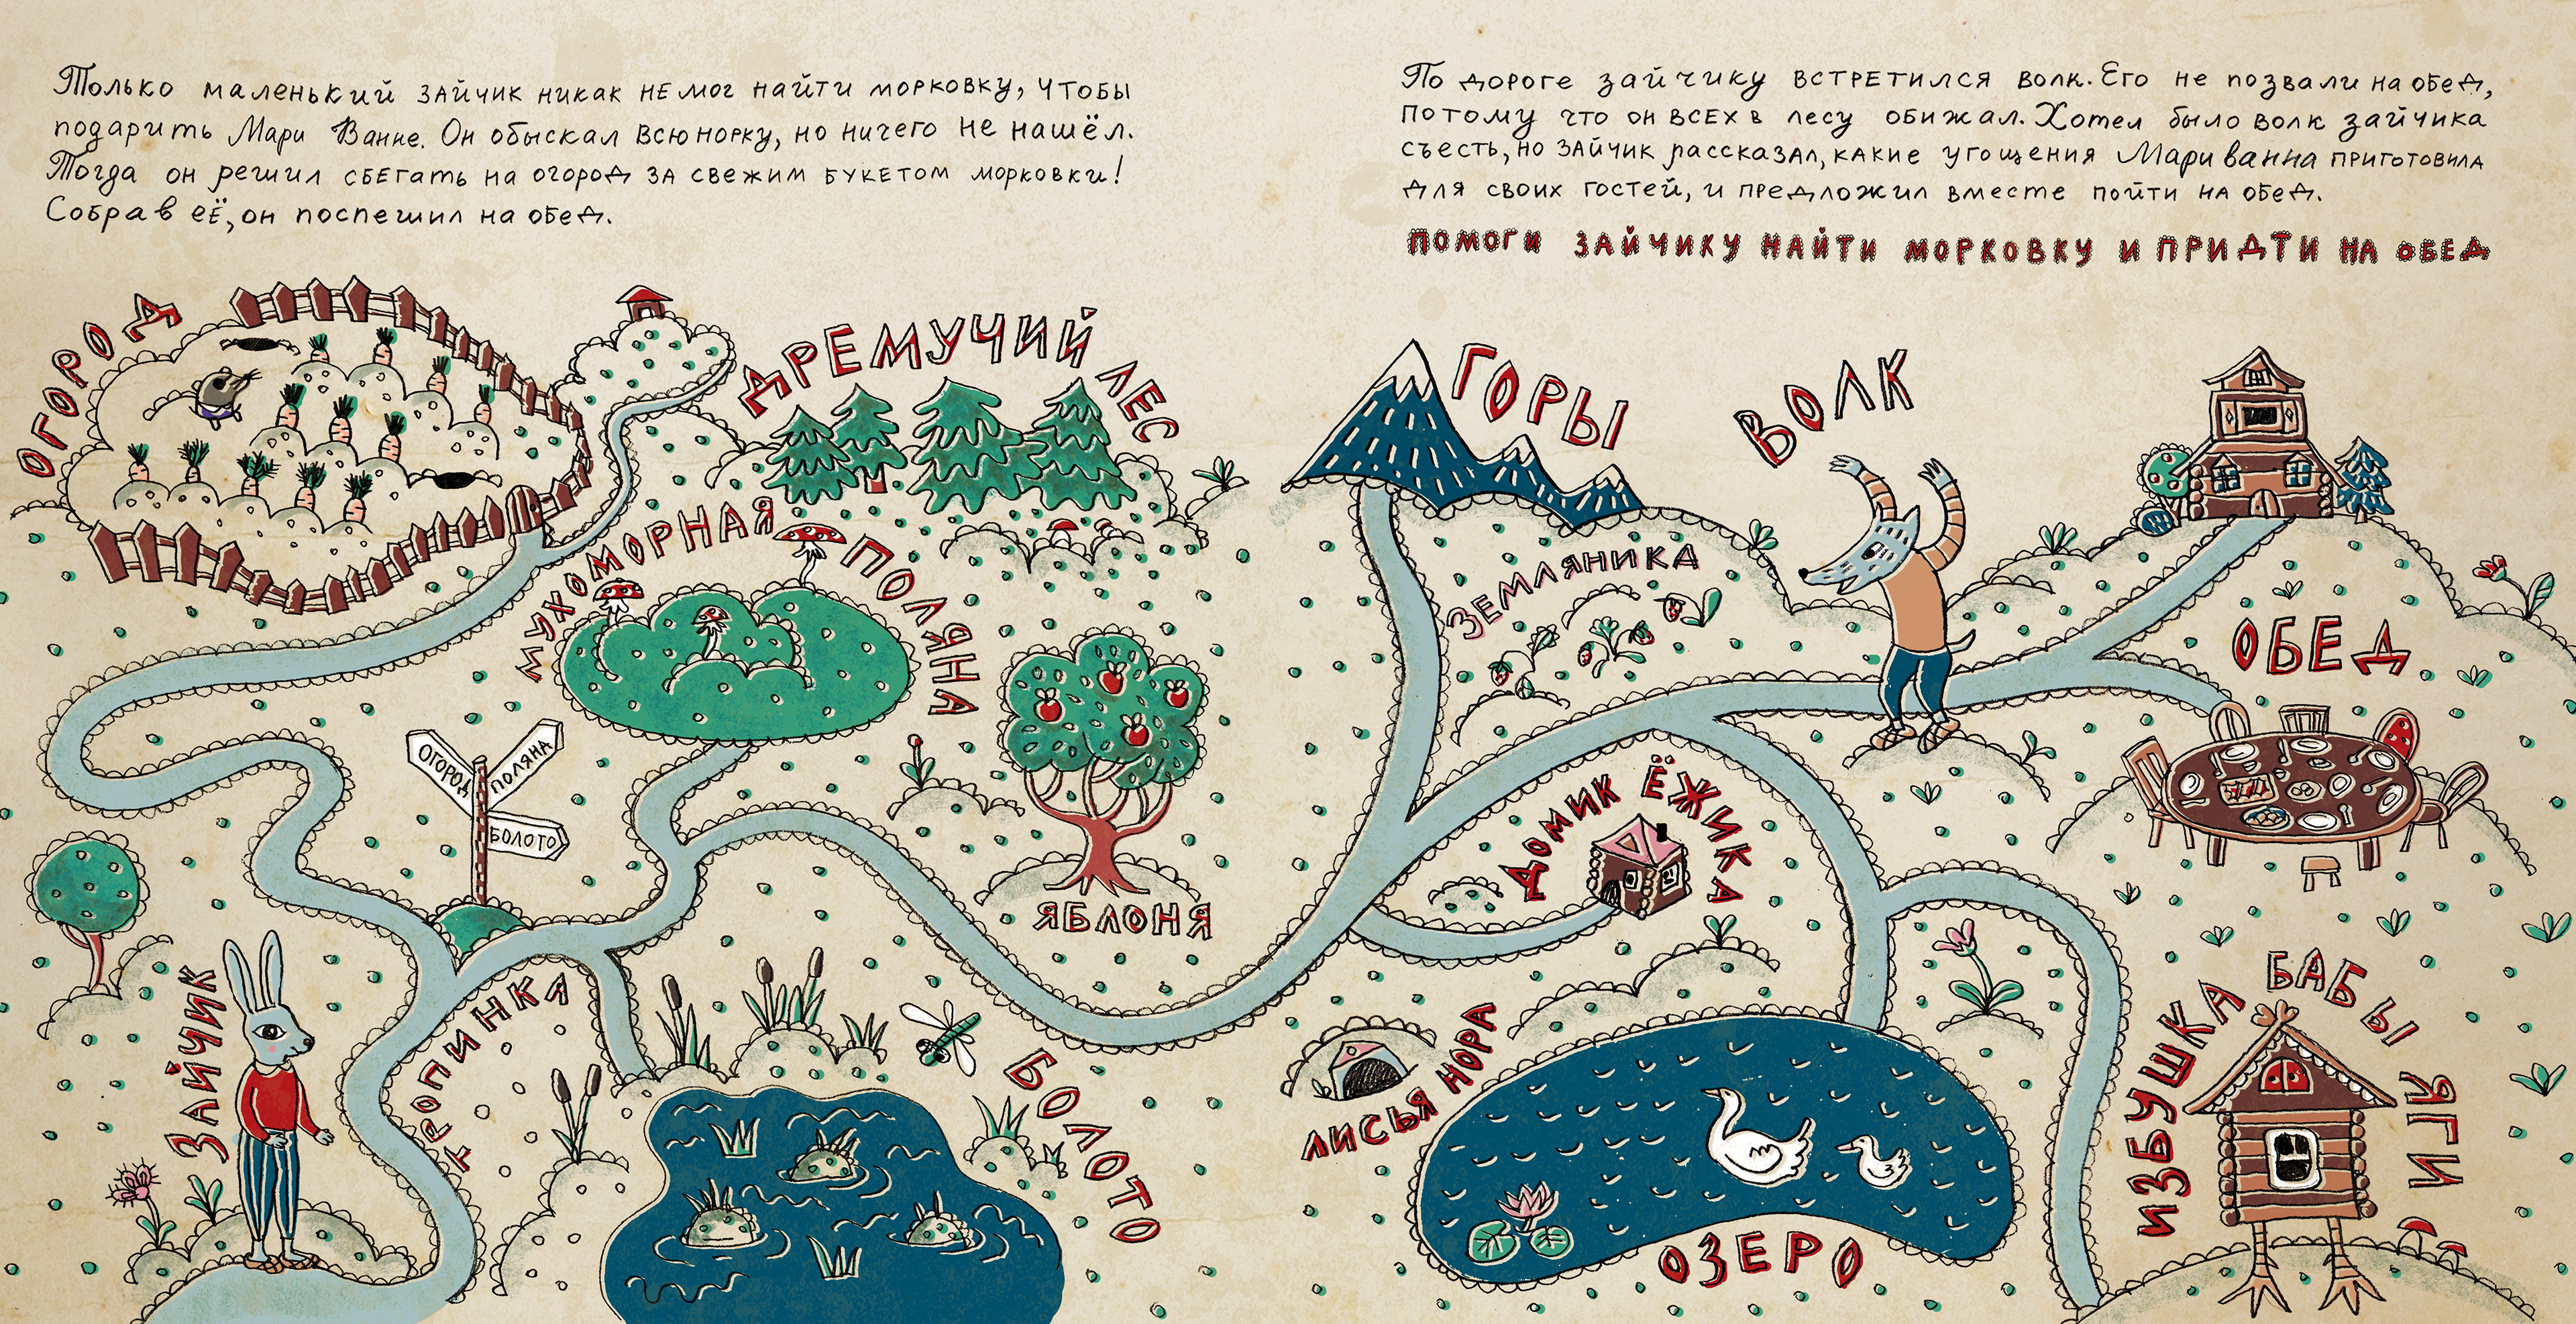 Только маленький зайчик никак не мог найти морковку, чтобы
подарить Мари Ванне. Он обыскал всю норку, но ничего не нашёл.
Тогда он решил сбегать на огород за свежим букетом морковки!
Собрав её, он поспешил на обед.
По дороге зайчику встретился волк. Его не позвали на обед,
потому что он всех в лесу обижал. Хотел было волк зайчика
съесть, но зайчик рассказал, какие угощения Мари ванна приготовила
для своих гостей, и предложил вместе пойти на обед.
ПОМОГИ ЗАЙЧИКУ НАЙТИ МОРКОВКУ И ПРИДТИ НА ОБЕД
ОГОРОД
ДРЕМУЧИЙ ЛЕС
ГОРЫ
ВОЛК
МУХОМОРНАЯ ПОЛЯНА
ЗЕМЛЯНИКА
ОБЕД
ОГОРОД
ПОЛЯНА
БОЛОТО
ДОМИК ЁЖИКА
ЯБЛОНЯ
ЗАЙЧИК
ТРОПИНКА
БОЛОТО
ЛИСЬЯ НОРА
ОЗЕРО
ИЗБУШКА БАБЫ ЯГИ